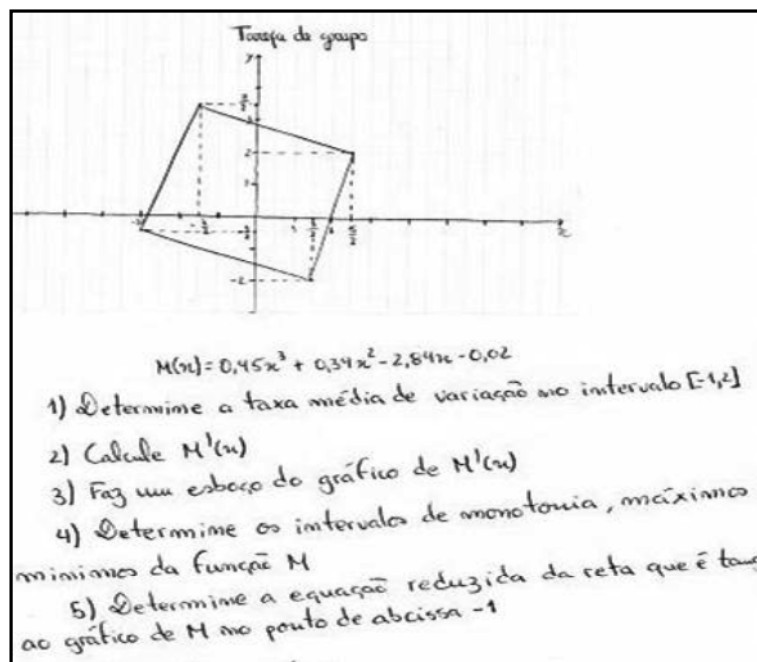 Tarefa de grupo
y
3
2
2
1
-2
M(x) = 0,45x³ + 0,34x² - 2,84x - 0,02
1) Determine a taxa média de variação no intervalo [-1,2]
2) Calcule M'(x)
3) Faz um esboço do gráfico de M'(x)
4) Determine os intervalos de monotonia, máximos
mínimos da função M
5) Determine a equação reduzida da reta que é tang
ao gráfico de M no ponto de abcissa -1